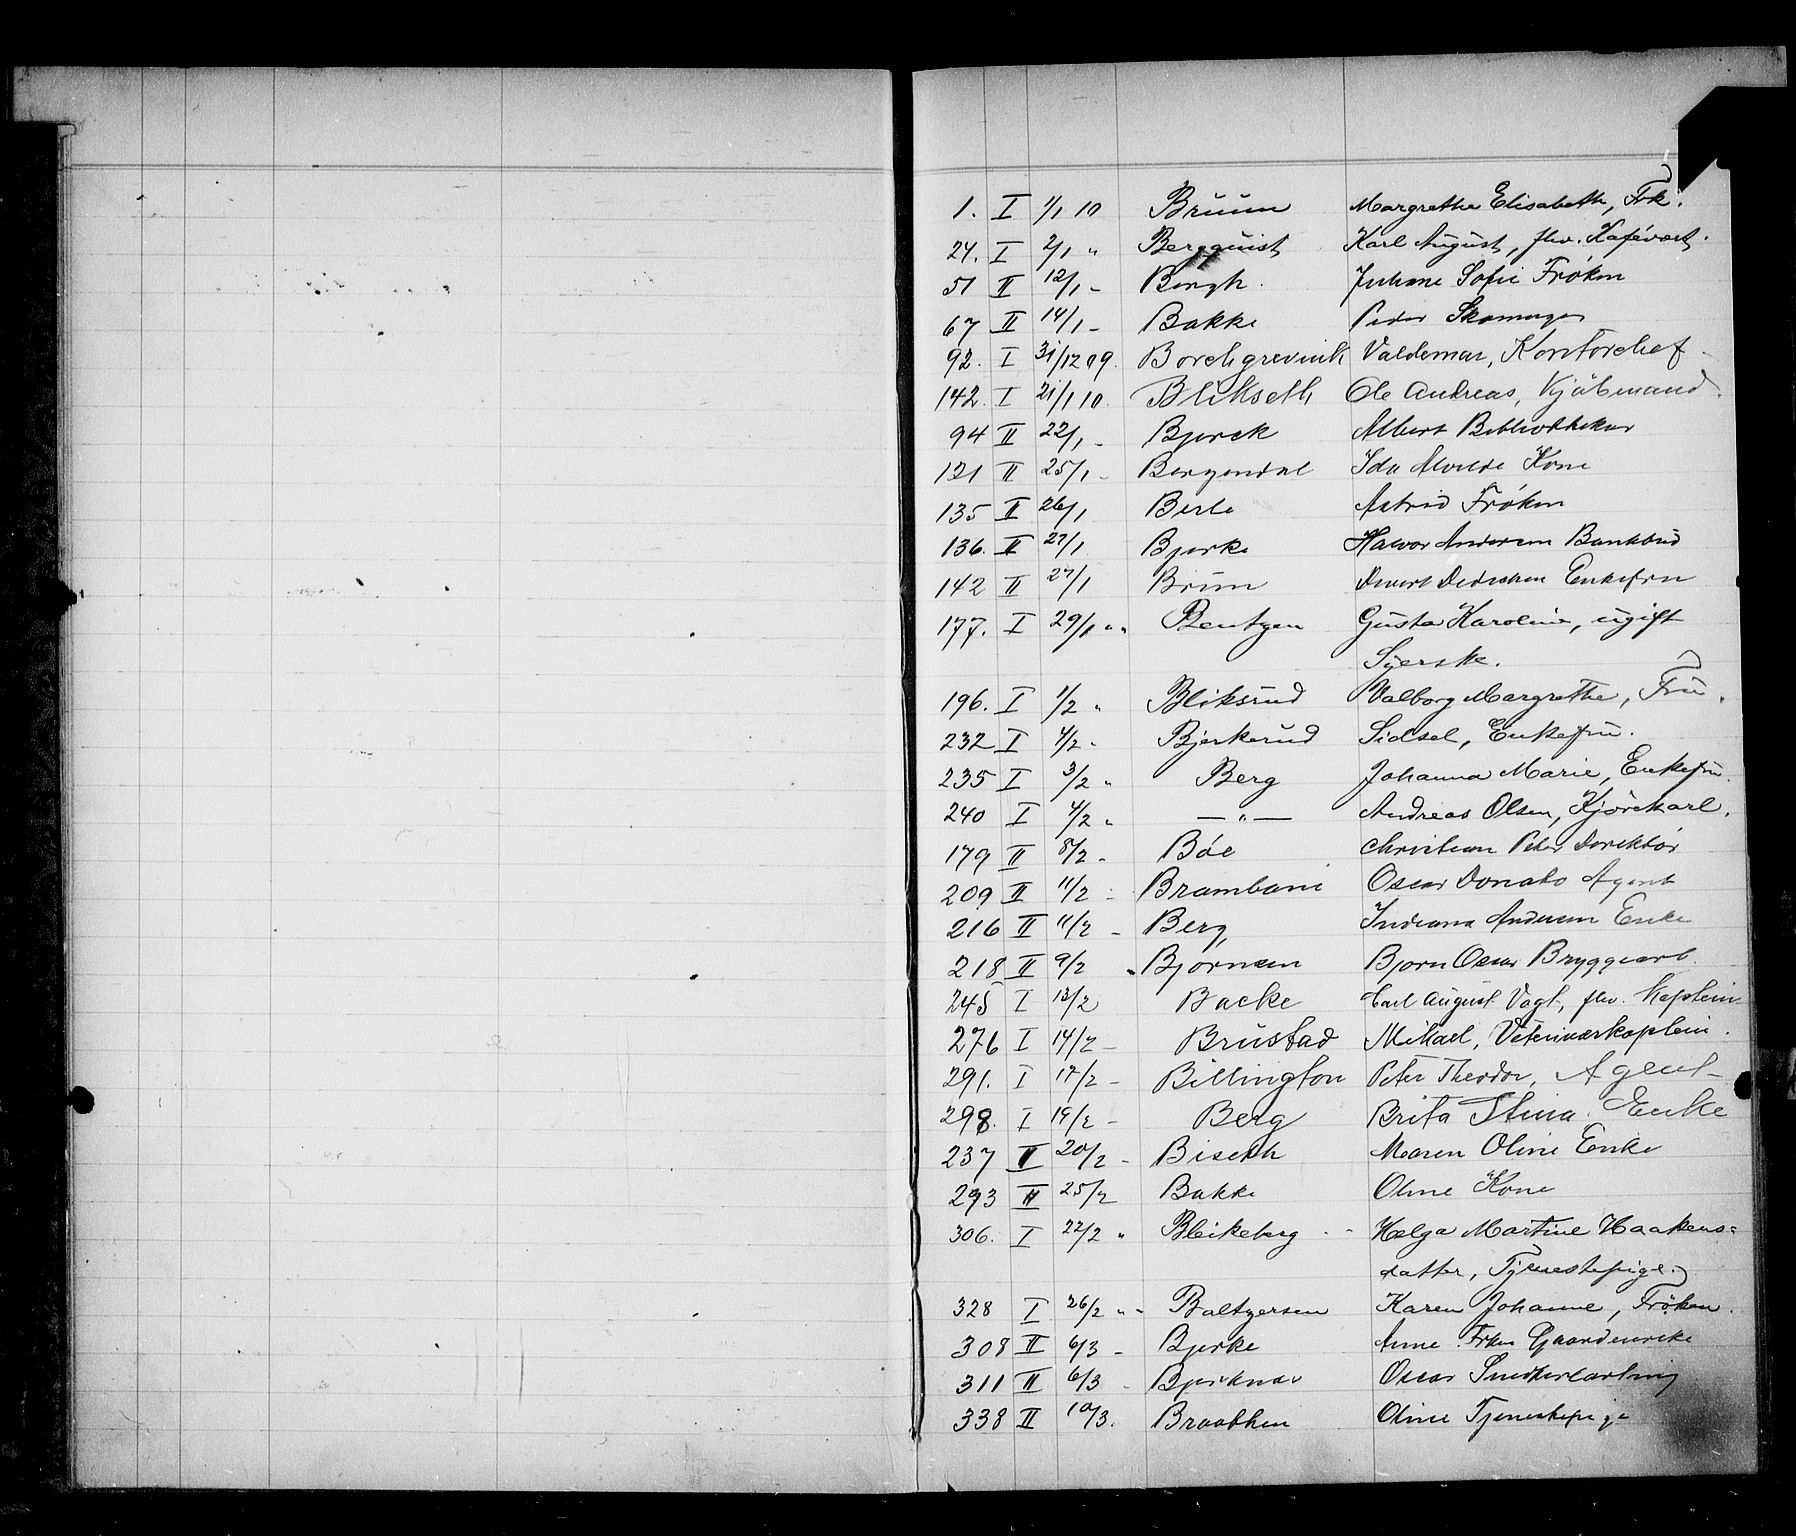 1. I 1/1 10 Bruun Margrethe Elisabeth, Frk.
24. I 2/1 " Bergquist Karl August, fhv. Kafévært.
51 II 12/1 - Bergh. Juliane Sofie Frøken
67 II 14/1 - Bakke Peder Skomager
92. I 31/12 09. Borchgrevink Valdemar, Kontorchef
142. I 21/1 10. Blikseth Ole Andreas, Kjøbmand.
94 II 22/1 - Bjerck Albert Bibliothekar
121 II 25/1 - Bergendal Ida Alvilde Kone
135 II 26/1 Berle Astrid Frøken
136. II 27/1 Bjerke Halvor Andersen Bankbud
142 II 27/1 Brun Didrichen Enkefru
177. I 29/1 " " Bentzen Gusta Karoline, ugift
Syerske.
196. I 1/2 " Bliksrud Valborg Margrethe, Fru.
232 I 4/2 " Bjerkerud Sidsel, Enkefru.
235 I 3/2 " Berg Johanna Marie, Enkefru.
240 I 4/2 " — " — Andreas Olsen, Kjørekarl.
179 II 8/2 - Bøe Christian Peter Direktør
209 II 11/2 - Brambani Oscar Donato Agent
216 II 11/2 - Berg, Indiana Andersen Enke
218 II 9/2 " Bjørnsen Bjørn Oscar Bryggearb.
245 I 13/2 Backe Carl August Vogt, fhv. Kaptein
276 I 14/2 - Brustad Mikael, Veterinærkaptein.
291. I 17/2 - Billington Peter Theodor, Agent
298. I 19/2 - Berg Brita Stina. Enke
237 II 20/2 - Biseth Maren Oline Enke
293 II 25/2 Bakke Oline Kone
306. I 22/2 " Bleikeberg Helga Martine Haakens=
datter, Tjenestepige.
328 I 26/2 " " Baltzersen Karen Johanne, Frøken.
308 II 6/3 - Bjerke Anne Gaardeierske
311 II 6/3 - Bjerknes Oscar Snedkerlærling
338 II 10/3. Braathen Oline Tjenestepige